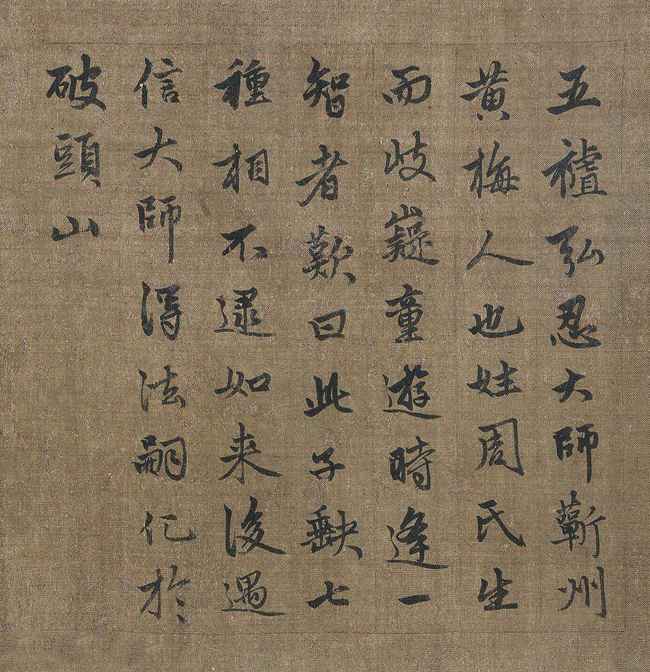 五弘忍大師蘄州
黄梅人也姓周氏生
而岐嶷童遊時逢一
智者歎曰此子缺七
種相不逮如来後遇
信大師得法嗣化於
破頭山